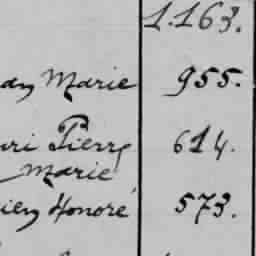 1.163.
an Marie 955.
uri Pierre 614.
Marie
ien Honoré 573.